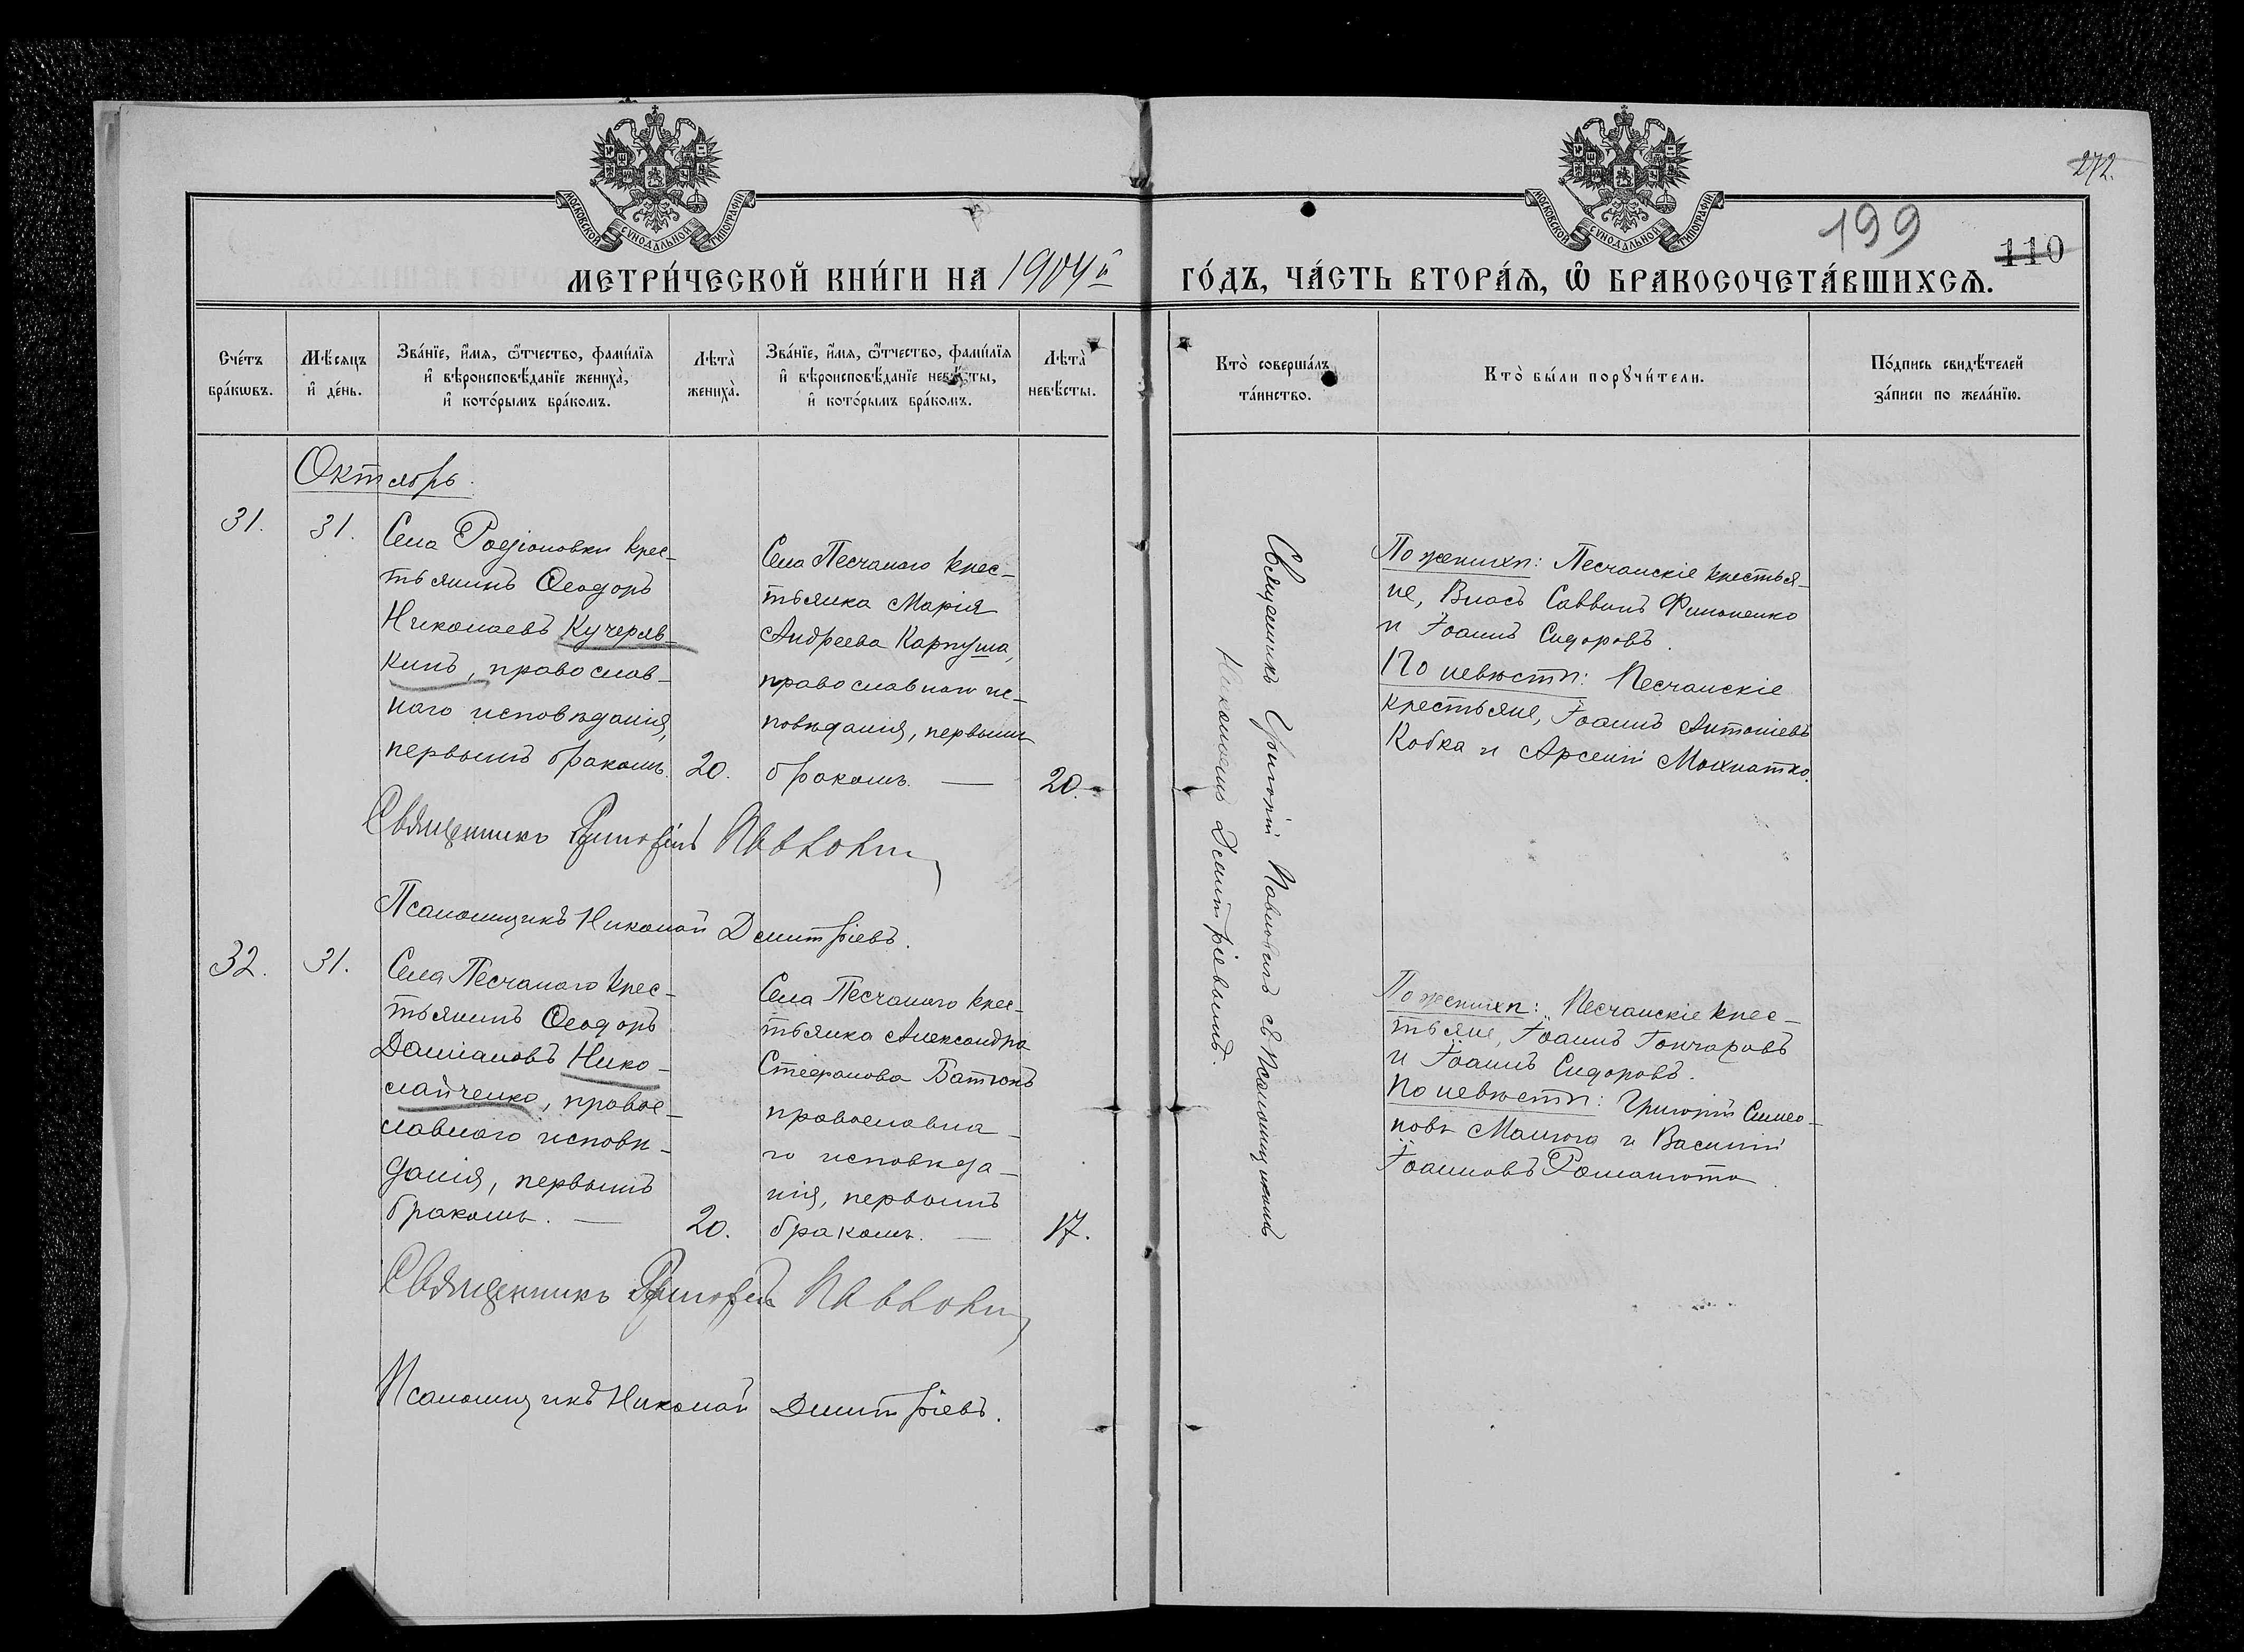 272.
199
110
МОСКОВСКОЙ СѴНОДАЛЬНОЙ ТИПОГРАФІИ
МОСКОВСКОЙ СѴНОДАЛЬНОЙ ТИПОГРАФІИ
МЕТРИ́ЧЕСКОЙ КНИ́ГИ НА 1904й ГО́ДЪ, ЧА́СТЬ ВТОРА́Ѧ, Ѽ БРАКОСОЧЕТА́ВШИХСѦ.
Сче́тъ
бра́кѡвъ.
Мѣ́сяцъ
и҆ де́нь.
Зва́нїе, и҆́мѧ, ѻ҆́тчество, фами́лїѧ
и҆ вѣроисповѣ́данїе жениха̀,
и҆ кото́рымъ бра́комъ.
Лѣта̀
жениха̀.
Зва́нїе, и҆́мѧ, ѻ҆́тчество, фами́лїѧ
и҆ вѣроисповѣ́данїе невѣ́сты,
и҆ кото́рымъ бра́комъ.
Лѣта̀
невѣ́сты.
Кто̀ соверша́лъ
та́инство.
Кто̀ бы́ли порꙋчи́тели.
По́дпись свидѣ́телей
за́писи по жела́нїю.
Октябрь.
31.
31.
Села Родіоновки крес-
тьянинъ Ѳеодоръ
Николаевъ Кучеряв-
кинъ, православ-
наго исповѣданія,
первымъ бракомъ.
20.
Села Песчанаго крес-
тьянка Марія
Андреева Карпуша,
православнаго ис-
повѣданія, первымъ
бракомъ. —
20.
Священникъ Григорій Павловичъ съ Псаломщикомъ
Николаемъ Дмитріевымъ.
По женихѣ: Песчанскіе крестья-
не, Власъ Саввинъ Филоненко
и Іоаннъ Сидоровъ.
По невѣстѣ: Песчанскіе
крестьяне, Іоаннъ Антоніевъ
Кобка и Арсеній Мохнатко.
Священникъ Григорій Павловичъ
Псаломщикъ Николай Дмитріевъ.
32.
31.
Села Песчанаго крес-
тьянинъ Ѳеодоръ
Даміановъ Нико-
лайченко, правос-
лавнаго исповѣ-
данія, первымъ
бракомъ. —
20.
Села Песчанаго крес-
тьянка Александра
Стефанова Батюкъ
православна-
го исповѣда-
нія, первымъ
бракомъ. —
17.
По женихѣ: Песчанскіе крес-
тьяне, Іоаннъ Гончаровъ
и Іоаннъ Сидоровъ.
По невѣстѣ: Григорій Симео-
новъ Манюга и Василій
Іоанновъ Романюта.
Священникъ Григорій Павловичъ
Псаломщикъ Николай Дмитріевъ.